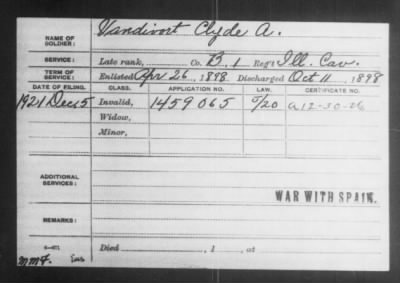 NAME OF SOLDIER: Vandivort Clyde A.
SERVICE: Late rank, Co. B. 1 Reg't Ill. Cav.
TERM OF SERVICE: Enlisted Apr 26, 1898 Discharged Oct 11, 1898
DATE OF FILING. CLASS. APPLICATION NO. LAW. CERTIFICATE NO.
1921 Dec 5 Invalid, 1459065 a12-30-26
Widow,
Minor,
ADDITIONAL SERVICES:
WAR WITH SPAIN.
REMARKS:
Died , 1 , at